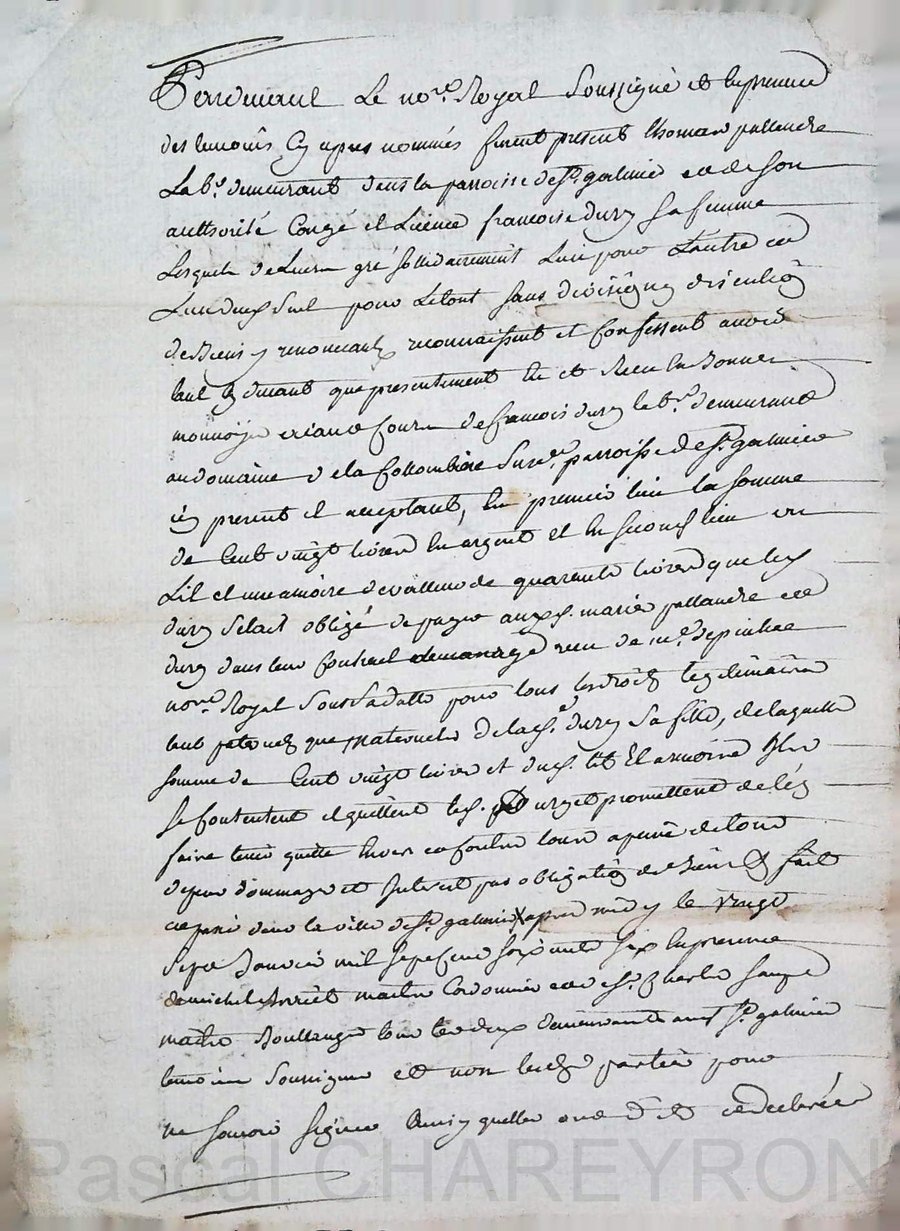 Pardevant Le no.re Royal Soussigné et En presence
des temoins Cy apres nommés furent present thomas pallandre
Lab.r demeurant dans la parroisse de S.t galmier et de son
authorité Congé et Licence francoise dury sa femme
Lesquels de Leurs gré sollidairement L'un pour L'autre et
L'un d'eux seul pour Le tout sans division ny discution
de Biens y renoncant reconnaissent et Confessent avoir
tant cy devant que presentement Eu et Receu En Bonnes
monnoyes aiant Cours de francois dury lab.r demeurant
au domaine de la Collombiere Sus.de parroisse de S.t galmier
icy present et acceptant, En premier lieu la somme
de Cent vingt livres En argent et En second lieu un
Lit et une armoire de valleur de quarante livres que led.
dury S'etait obligé de payer auxd. mariés pallandre et
dury dans leur Contract de mariage receu de m.e
no.re Royal Sous sa datte pour tous les droits legitimaires
tant paternels que Maternels de lad.e dury sa fille, de laquelle
somme de Cent vingt livres et dud. lit Et armoire Ils
se Contentent et quittent led. dury et promettent de l'en
faire tenir quitte Envers et Contre tous a peine de tous
depens dommages et Interest par obligation de Biens & fait
et passé dans la ville de S.t galmier apres midy le vingt
Sept Janvier mil sept cent soixante six En presence
de michel maitre Cordonnier et de S.r Charles
maitre Boullanger tous les deux demeurants aud. S.t galmier
temoins Soussignes et non lesd. parties pour
ne scavoir signer Ainsy quelles ont dit et declarées
Pascal CHAREYRON